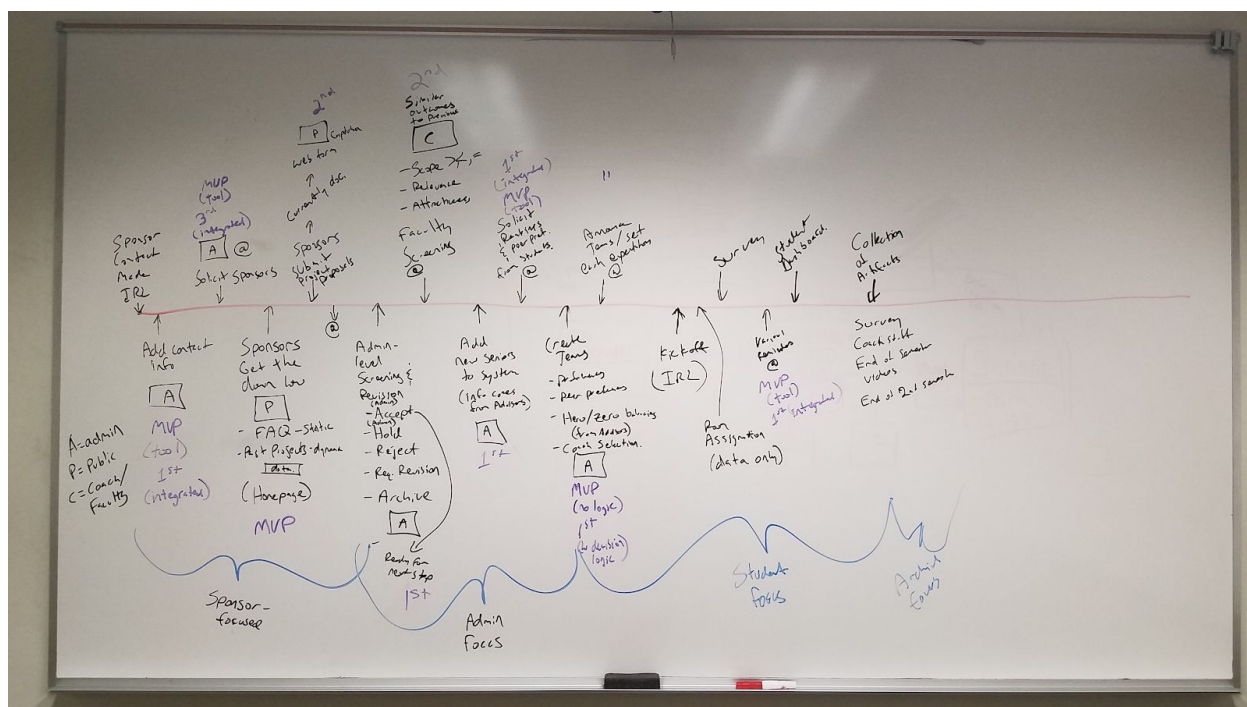 Sponsor
Contact
Made
IRL
MVP
(tool)
3rd
(integrated)
A @
Solicit Sponsors
2nd
P Captcha
web form
Currently does
Sponsors
submit
project
proposals
@
2nd
Similar
outcomes
to previous
C
- Scope ><,=
- Relevance
- Attractiveness
Faculty
Screening
@
1st
(integrated)
MVP
(tool)
Solicit
& peer pref.
from students
@
"
Announce
Teams / set
Expectations
@
Survey
Student
Dashboard
Collection
of
Artifacts
Add contact
info
A
MVP
(tool)
1st
(integrated)
A=admin
P=Public
C=Coach/
Faculty
Sponsors
Get the
down low
P
- FAQ - static
- Past Projects - dynamic
data
(Homepage)
MVP
Admin-
level
Screening &
Revision
(Admin)
- Accept
(Admin)
- Hold
- Reject
- Req. Revision
- Archive
A
Ready for
next step
1st
Add
new seniors
to system
(Info comes
from Advisors)
A
1st
Create
Teams
- preferences
- Hero/zero balancing
(from Advisors)
- Coach Selection
A
MVP
(no logic)
1st
(w decision
logic)
Kickoff
(IRL)
Room
Assignation
(data only)
Various
Reminders
@
MVP
(tool)
1st integrated)
Survey
Coach stuff
End of semester
videos
End of 2nd semester
Sponsor-
focused
Admin
Focus
Student
focus
Archive
focus